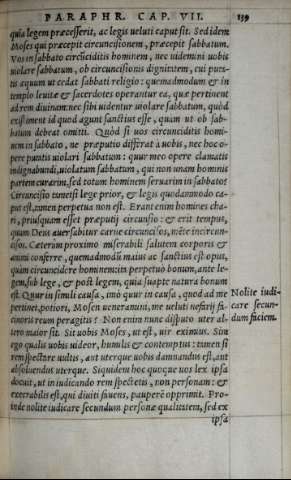 PARAPHR. CAP. VII. 139
quia legem præcesserit, ac legis ueluti caput sit. Sed idem
Moses qui præcepit circuncisionem, præcepit sabbatum.
Vos in sabbato circũciditis hominem, nec uidemini uobis
uiolare sabbatum, ob circuncisionis dignitatem, cui puta-
tis æquum ut cedat sabbati religio: quemadmodum & in
templo leuitæ & sacerdotes operantur ea, quæ pertinent
ad rem diuinam: nec sibi uidentur uiolare sabbatum, quòd
existiment id quod agunt sanctius esse, quàm ut ob sab-
batum debeat omitti. Quòd si uos circunciditis homi-
nem in sabbato, ne præputio differat à uobis, nec hoc o-
pere putatis uiolari sabbatum: quur meo opere clamatis
indignabundi, uiolatum sabbatum, qui non unam hominis
partem curarim, sed totum hominem seruarim in sabbato?
Circuncisio tametsi lege prior, & legis quodammodo ca-
put est, tamen perpetua non est. Erant enim homines cha-
ri, priusquam esset præputij circunsio: & erit tempus,
quum Deus auersabitur carne circuncisos, mẽte incircun-
cisos. Cæterùm proximo miserabili salutem corporis &
animi conferre, quemadmodũ maius ac sanctius est opus,
quàm circuncidere hominem: ita perpetuò bonum, ante le-
gem, sub lege, & post legem, quia suapte natura bonum
est. Quur in simili causa, imò quur in causa, quod ad me
pertinet, potiori, Mosen ueneramini, me ueluti nefarij fa-
cinoris reum peragitis? Non enim nunc disputo uter al-
tero maior sit. Sit uobis Moses, ut est, uir eximius. Sim
ergo qualis uobis uideor, humilis & contemptus: tamen si
rem spectare uultis, aut uterque uobis damnandus est, aut
absoluendus uterque. Siquidem hoc quoque uos lex ipsa
docuit, ut in iudicando rem spectetis, non personam: &
execrabilis est, qui diuiti fauens, pauperẽ opprimit. Pro-
inde nolite iudicare secundum personæ qualitatem, sed ex
ipsa
Nolite iudi-
care secun-
dum faciem.